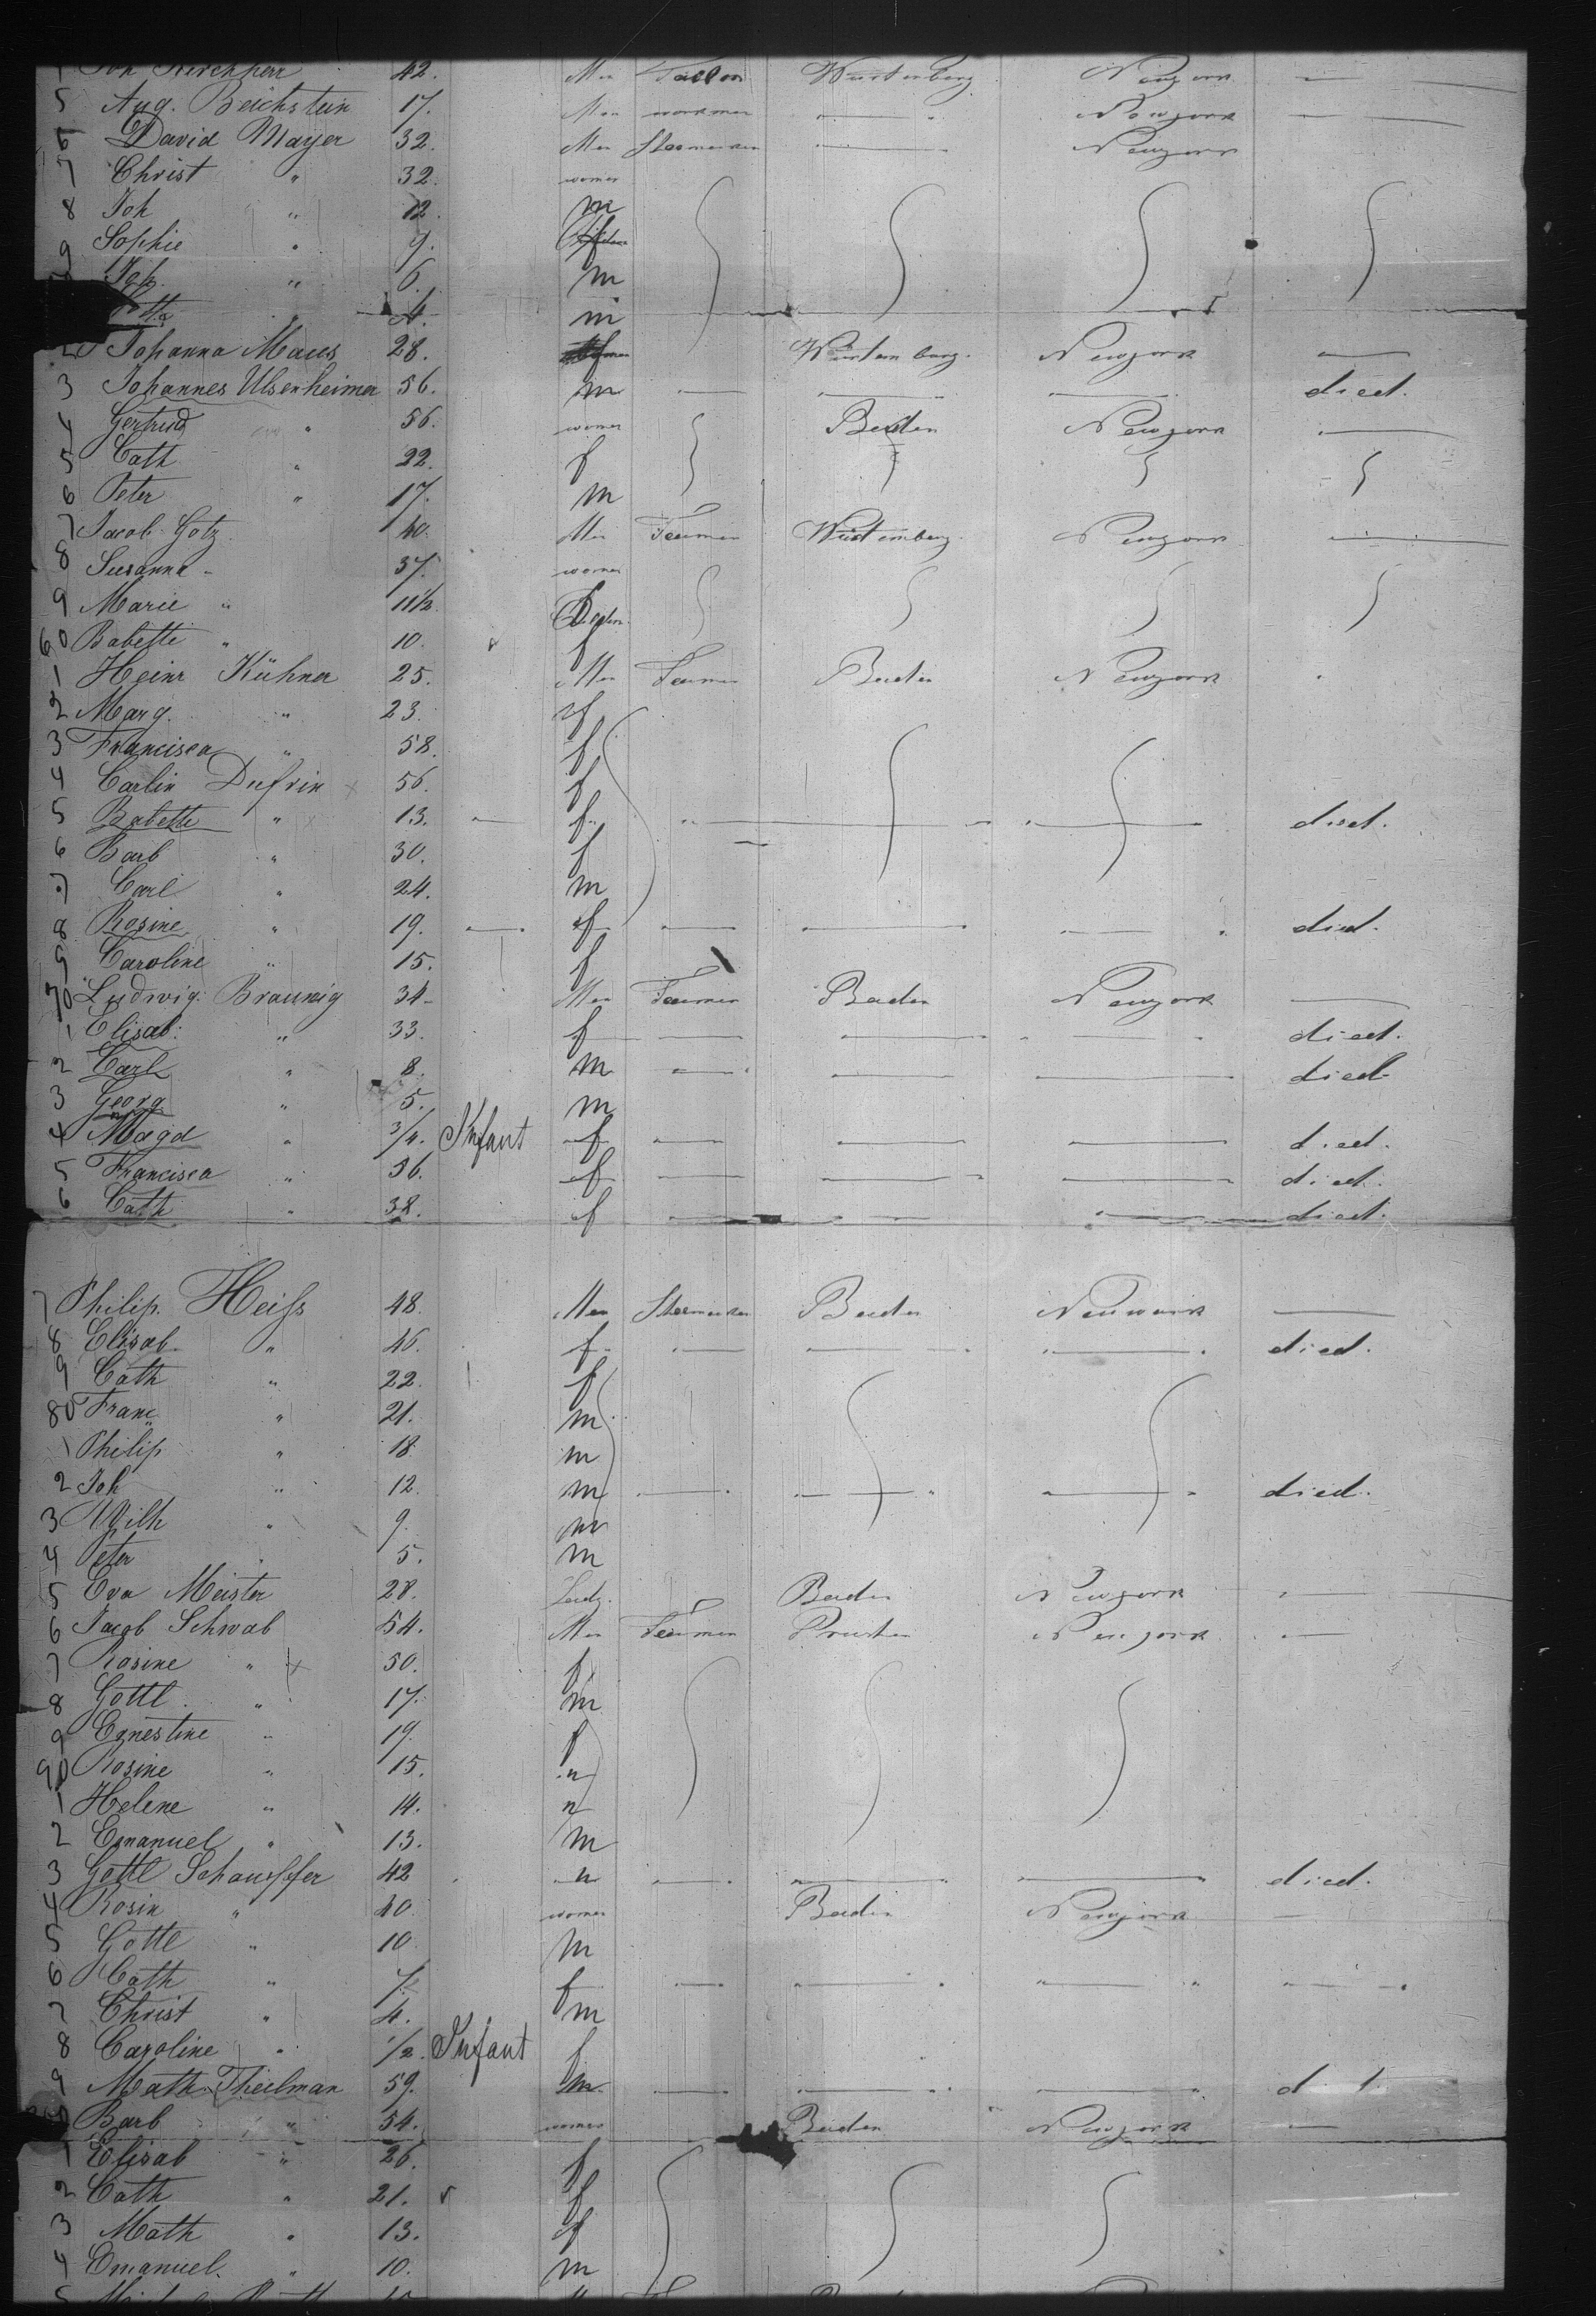 Joh Kirchherr 42. Men Tailor Würtenberg Newyork —
5 Aug. Beichstein 17. Men workmen — " Newyork —
6 David Mayer 32. Men — Newyork
7 Christ " 32. women
8 Joh " 12. m
9 Sophie " 9. f
Joh. " 6. m
Gottl. " 4. m
2 Johanna Maus 28. f Würtemberg. Newyork —
3 Johannes Ulsenheimer 56. m — — — died.
4 Gertrud " 56. women Baden Newyork —
5 Cath " 22. f
6 Peter " 17. m
7 Jacob Gotz 40. Men Faumer Würtemberg. Newyork —
8 Susanna " 37. women
9 Marie " 11½ f
60 Babette " 10. f
1 Heinr Kühner 25. Men Faumer Baden Newyork
2 Marg. " 23. f
3 Francisca " 58. f
4 Carlin Dufrin x 56. f
5 Babette " 13. — f. — — died.
6 Barb " 30. f
7 Carl " 24. m
8 Rosine " 19. — f — — — died.
9 Caroline " 15. f
70 Ludwig Braunig 34. Men Faumer Baden Newyork —
1 Elisab: " 33. f — — — died.
2 Carl " 8. m — — — died
3 Georg " 5. m
4 Magd " 3/4. Infant f — — — died.
5 Francisca " 36. f — — — died.
6 Cath " 38. f — — — died.
7 Philip. Heiss 48. Men Baden Newyork —
8 Elisab. " 46. f. — — — died.
9 Cath " 22. f
80 Franc " 21. m
1 Philip " 18 m
2 Joh " 12. m — — — died.
3 Wilh " 9. m
4 Peter " 5. m
5 Eva Meister 28. Ledg. Baden Newyork —
6 Jacob Schwab 54. Men Faumer Preussen Newyork —
7 Rosine " x 50. f
8 Gottl. " 17. m
9 Ernestine " 19. f
90 Rosine " 15. n
1 Helene " 14. n
2 Emanuel " 13. m
3 Gottl Schauffer 42 n — — — died.
4 Rosin " 40. women Baden Newyork —
5 Gottl " 10 m
6 Cath " 7. f — — — —
7 Christ " 4. m
8 Caroline " 1/2. Infant f
9 Math. Theilman 59. m — — — died.
Barb " 54. women Baden Newyork —
1 Elisab " 26. f
2 Cath " 21. f
3 Math " 13. f
4 Emanuel. " 10. m